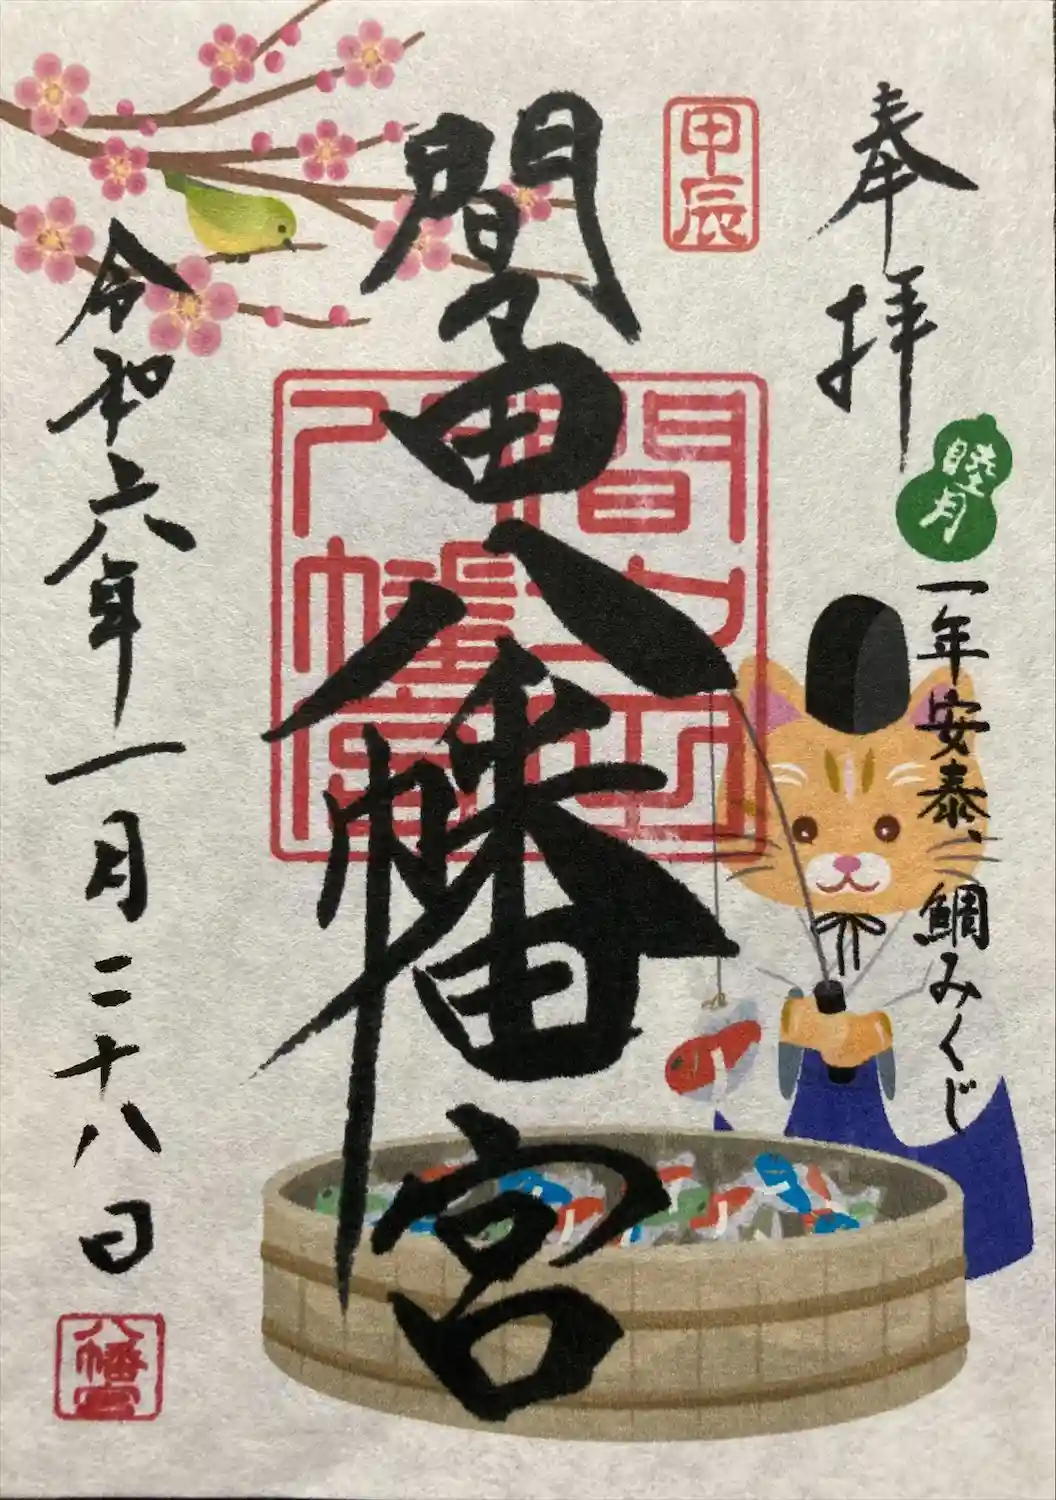 奉拝
睦月
一年安泰、鯛みくじ
甲辰
間々田八幡宮
間々田
八幡宮
令和六年一月二十八日
八幡宮